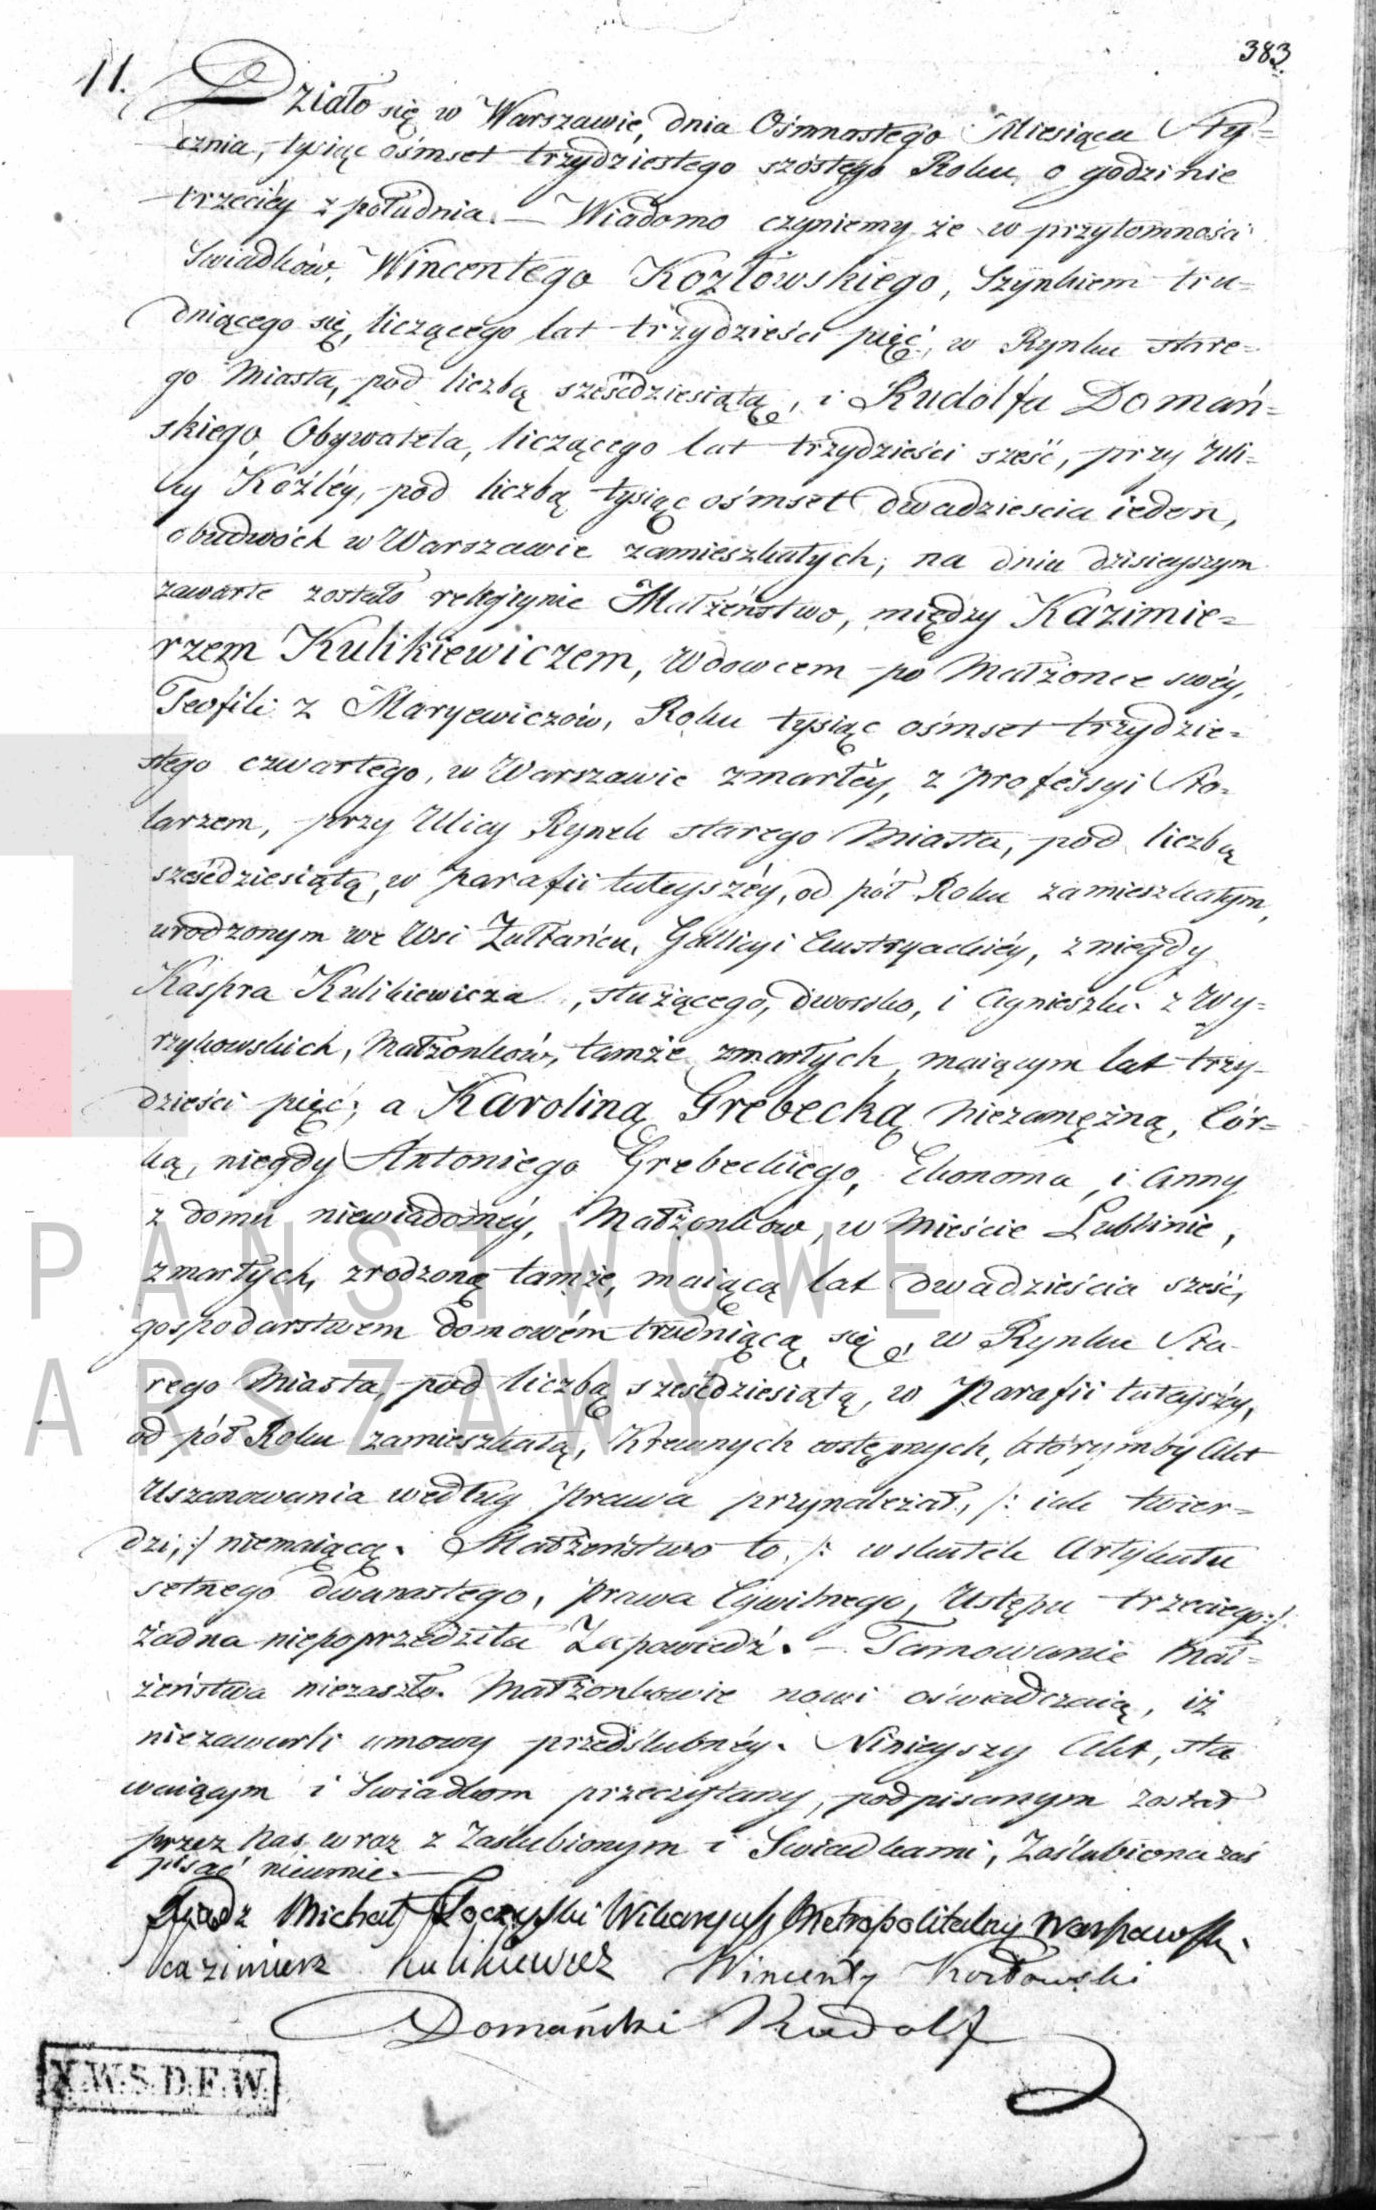 383.
11. Działo się w Warszawie, dnia Ośmnastego Miesiąca Sty=
cznia, tysiąc ośmset trzydziestego szóstego Roku, o godzinie
trzeciéy z południa. — Wiadomo czyniemy że w przytomności
Swiadków, Wincentego Kozłowskiego, Szynkiem tru=
dniącego się, liczącego lat trzydzieści pięć, w Rynku stare=
go Miasta, pod liczbą sześćdziesiątą, i Rudolfa Domań=
skiego, Obywatela, liczącego lat trzydzieści sześć, przy Uli=
cy Koźléy, pod liczbą tysiąc ośmset dwadzieścia ieden,
obudwóch w Warszawie zamieszkałych; na dniu dzisieyszym
zawarte zostało religiynie Małżeństwo, między Kazimie=
rzem Kulikiewiczem, Wdowcem po Małżonce swéy,
Teofili z Maryewiczów, Roku tysiąc ośmset trzydzie=
stego czwartego, w Warszawie zmarłéy, z Professyi Sto=
larzem, przy Ulicy Rynek starego Miasta, pod liczbą
sześćdziesiątą, w Parafii tuteyszéy, od pół Roku zamieszkałym,
urodzonym we Wsi Żułtańcu, Gallicyi Austryackiéy, z niegdy
Kaspra Kulikiewicza, służącego, dworsko, i Agnieszki z Wy=
rzykowskich, Małżonków, tamże zmarłych, maiącym lat trzy=
dzieści pięć; a Karoliną Grebecką niezamężną, Cór=
ką, niegdy Antoniego Grebeckiego, Ekonoma, i Anny
z domu niewiadoméy, Małżonków, w Mieście Lublinie,
zmarłych, zrodzoną tamże, maiącą lat dwadzieścia sześć,
gospodarstwem domowém trudniącą się, w Rynku Sta=
rego Miasta, pod liczbą sześćdziesiątą, w Parafii tuteyszéy,
od pół Roku zamieszkałą, Krewnych wstępnych, którymby Akt
Uszanowania według Prawa przynależał, /: iak twier=
dzi, :/ niemaiącą. Małżeństwo to, /: w skutek Artykułu
setnego dwunastego, Prawa Cywilnego, Ustępu trzeciego :/
żadna niepoprzedziła Zapowiedź. — Tamowanie Mał=
żeństwa niezaszło. Małżonkowie nowi oświadczaią, iż
niezawarli umowy przedślubnéy. Ninieyszy Akt, sta
waiącym i Swiadkom przeczytany, podpisanym został
przez Nas wraz z Zaślubionym i Swiadkami, Zaślubiona zaś
pisać nieumie. —
Xiądz Michał Wikaryusz Metropolitalny Warszawski.
Kazimierz Kulikiewicz Wincenty Kozłowski
Domański Rudolf
X.W.S.D.F.W.
PAŃSTWOWE
ARSZAWY